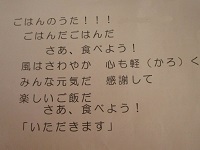 ごはんのうた！！！
ごはんだごはんだ
さあ、食べよう！
風はさわやか　心も軽（かろ）く
みんな元気だ　感謝して
楽しいご飯だ
さあ、食べよう！
「いただきます」